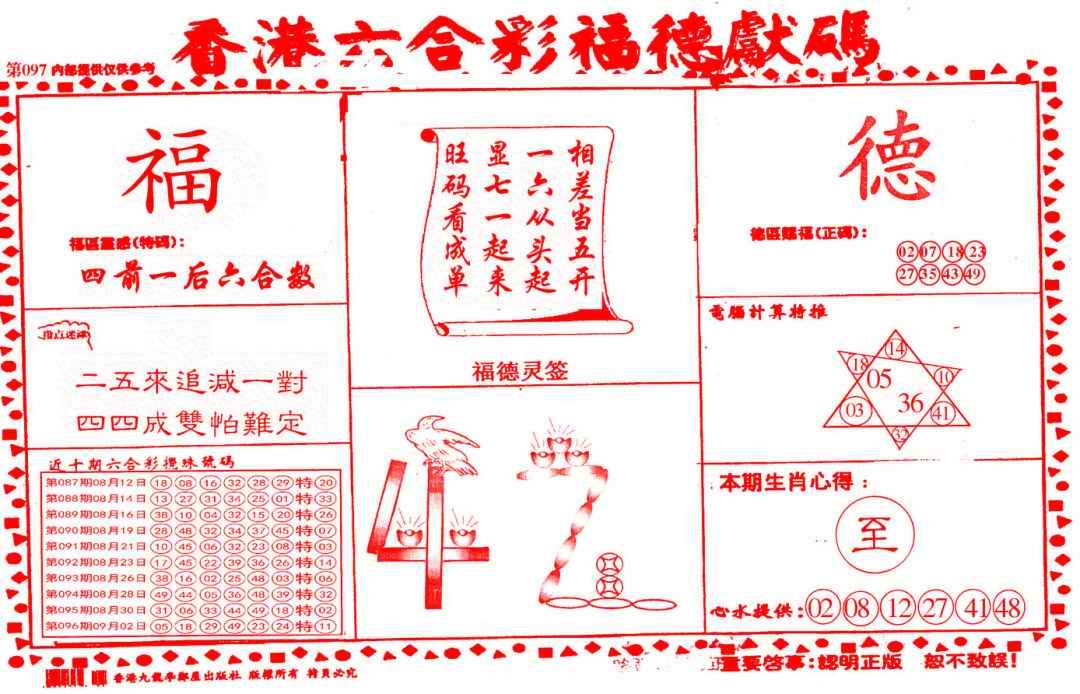 香港六合彩福德獻碼
第097 内部提供仅供参考
福
福區靈感(特碼):
四前一后六合数
二五來追减一對
四四成雙怕難定
近十期六合彩攪珠號碼
第087期08月12日 18 08 16 32 28 29 特 20
第088期08月14日 13 27 31 34 25 01 特 33
第089期08月16日 38 10 04 32 15 20 特 26
第090期08月19日 28 48 32 34 37 45 特 07
第091期08月21日 10 45 06 32 23 08 特 03
第092期08月23日 17 45 22 39 36 26 特 14
第093期08月26日 38 16 02 25 48 03 特 06
第094期08月28日 49 44 05 36 48 39 特 32
第095期08月30日 31 06 33 44 49 18 特 02
第096期09月02日 05 18 29 49 23 24 特 11
相差当五开
一六从头起
显七一起来
旺码看成单
福德灵签
德
德區賜福(正碼):
02 07 18 23
27 35 43 49
電腦計算特推
14
18 05 10
03 36 41
32
本期生肖心得:
至
心水提供: 02 08 12 27 41 48
香港九龍 出版社 版權所有 翻員必究
重要啓事:認明正版 恕不致誤!